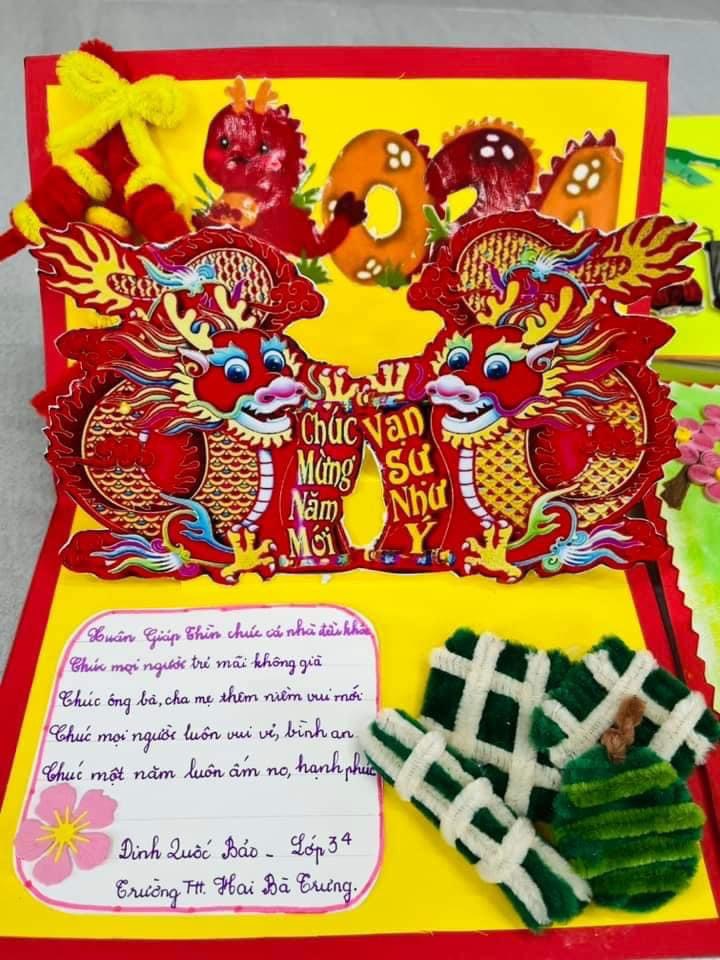 2024
Chúc
Mừng
Năm
Mới
Vạn
Sự
Như
Ý
Xuân Giáp Thìn chúc cả nhà đều khỏe
Chúc mọi người trẻ mãi không già
Chúc ông bà, cha mẹ thêm niềm vui mới
Chúc mọi người luôn vui vẻ, bình an
Chúc một năm luôn ấm no, hạnh phúc
Đinh Quốc Bảo - Lớp 3⁴
Trường TH. Hai Bà Trưng.